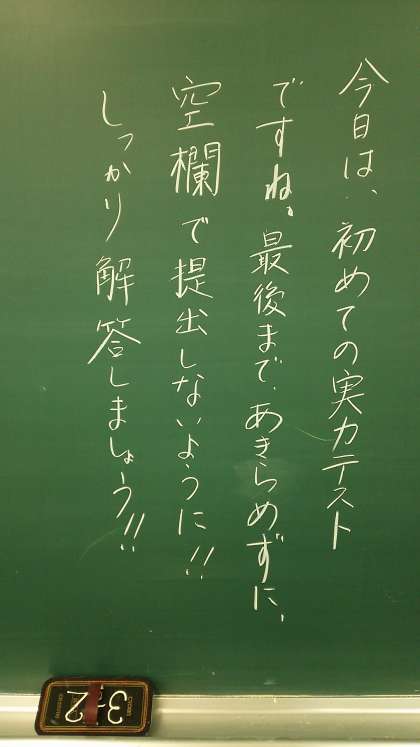 今日は、初めての実力テスト
ですね。最後まで、あきらめずに、
空欄で提出しないように!!
しっかり解答しましょう!!
3-2